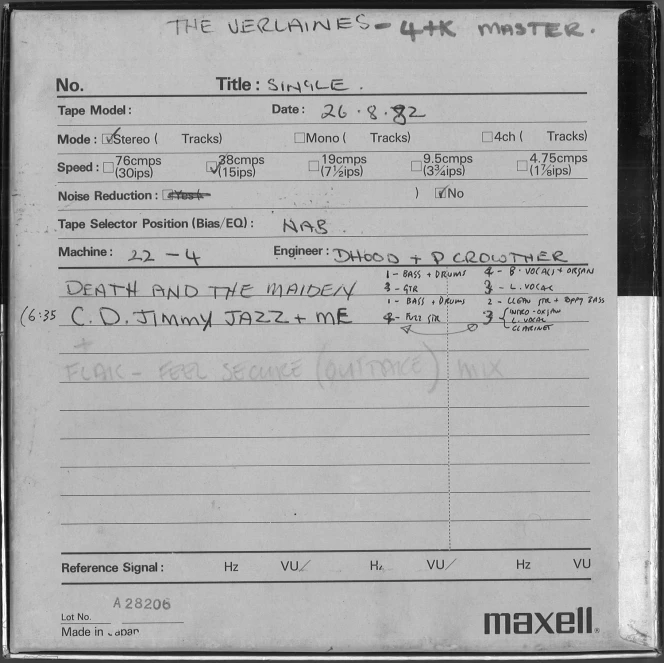 THE VERLAINES - 4+K MASTER.
No. Title: SINGLE.
Tape Model: Date: 26.8.82
Mode: Stereo ( Tracks) Mono ( Tracks) 4ch ( Tracks)
Speed: 76cmps (30ips) 38cmps (15ips) 19cmps (7½ips) 9.5cmps (3¾ips) 4.75cmps (1⅞ips)
Noise Reduction: Yes ( ) No
Tape Selector Position (Bias/EQ): NAB.
Machine: 22-4 Engineer: D HOOD + P CROWTHER
DEATH AND THE MAIDEN 1 - BASS + DRUMS 4 - B. VOCALS + ORGAN
3 - GTR 3 - L. VOCAL
(6:35 C.D. JIMMY JAZZ + ME 1 - BASS + DRUMS 2 - CLEAN GTR + BASS
4 - FUZZ GTR 3 - INTRO - ORGAN
L. VOCAL
CLARINET
+
FEEL SECURE ( ) MIX
Reference Signal: Hz VU/ Hz VU/ Hz VU
Lot No. A28206
Made in Japan
maxell.